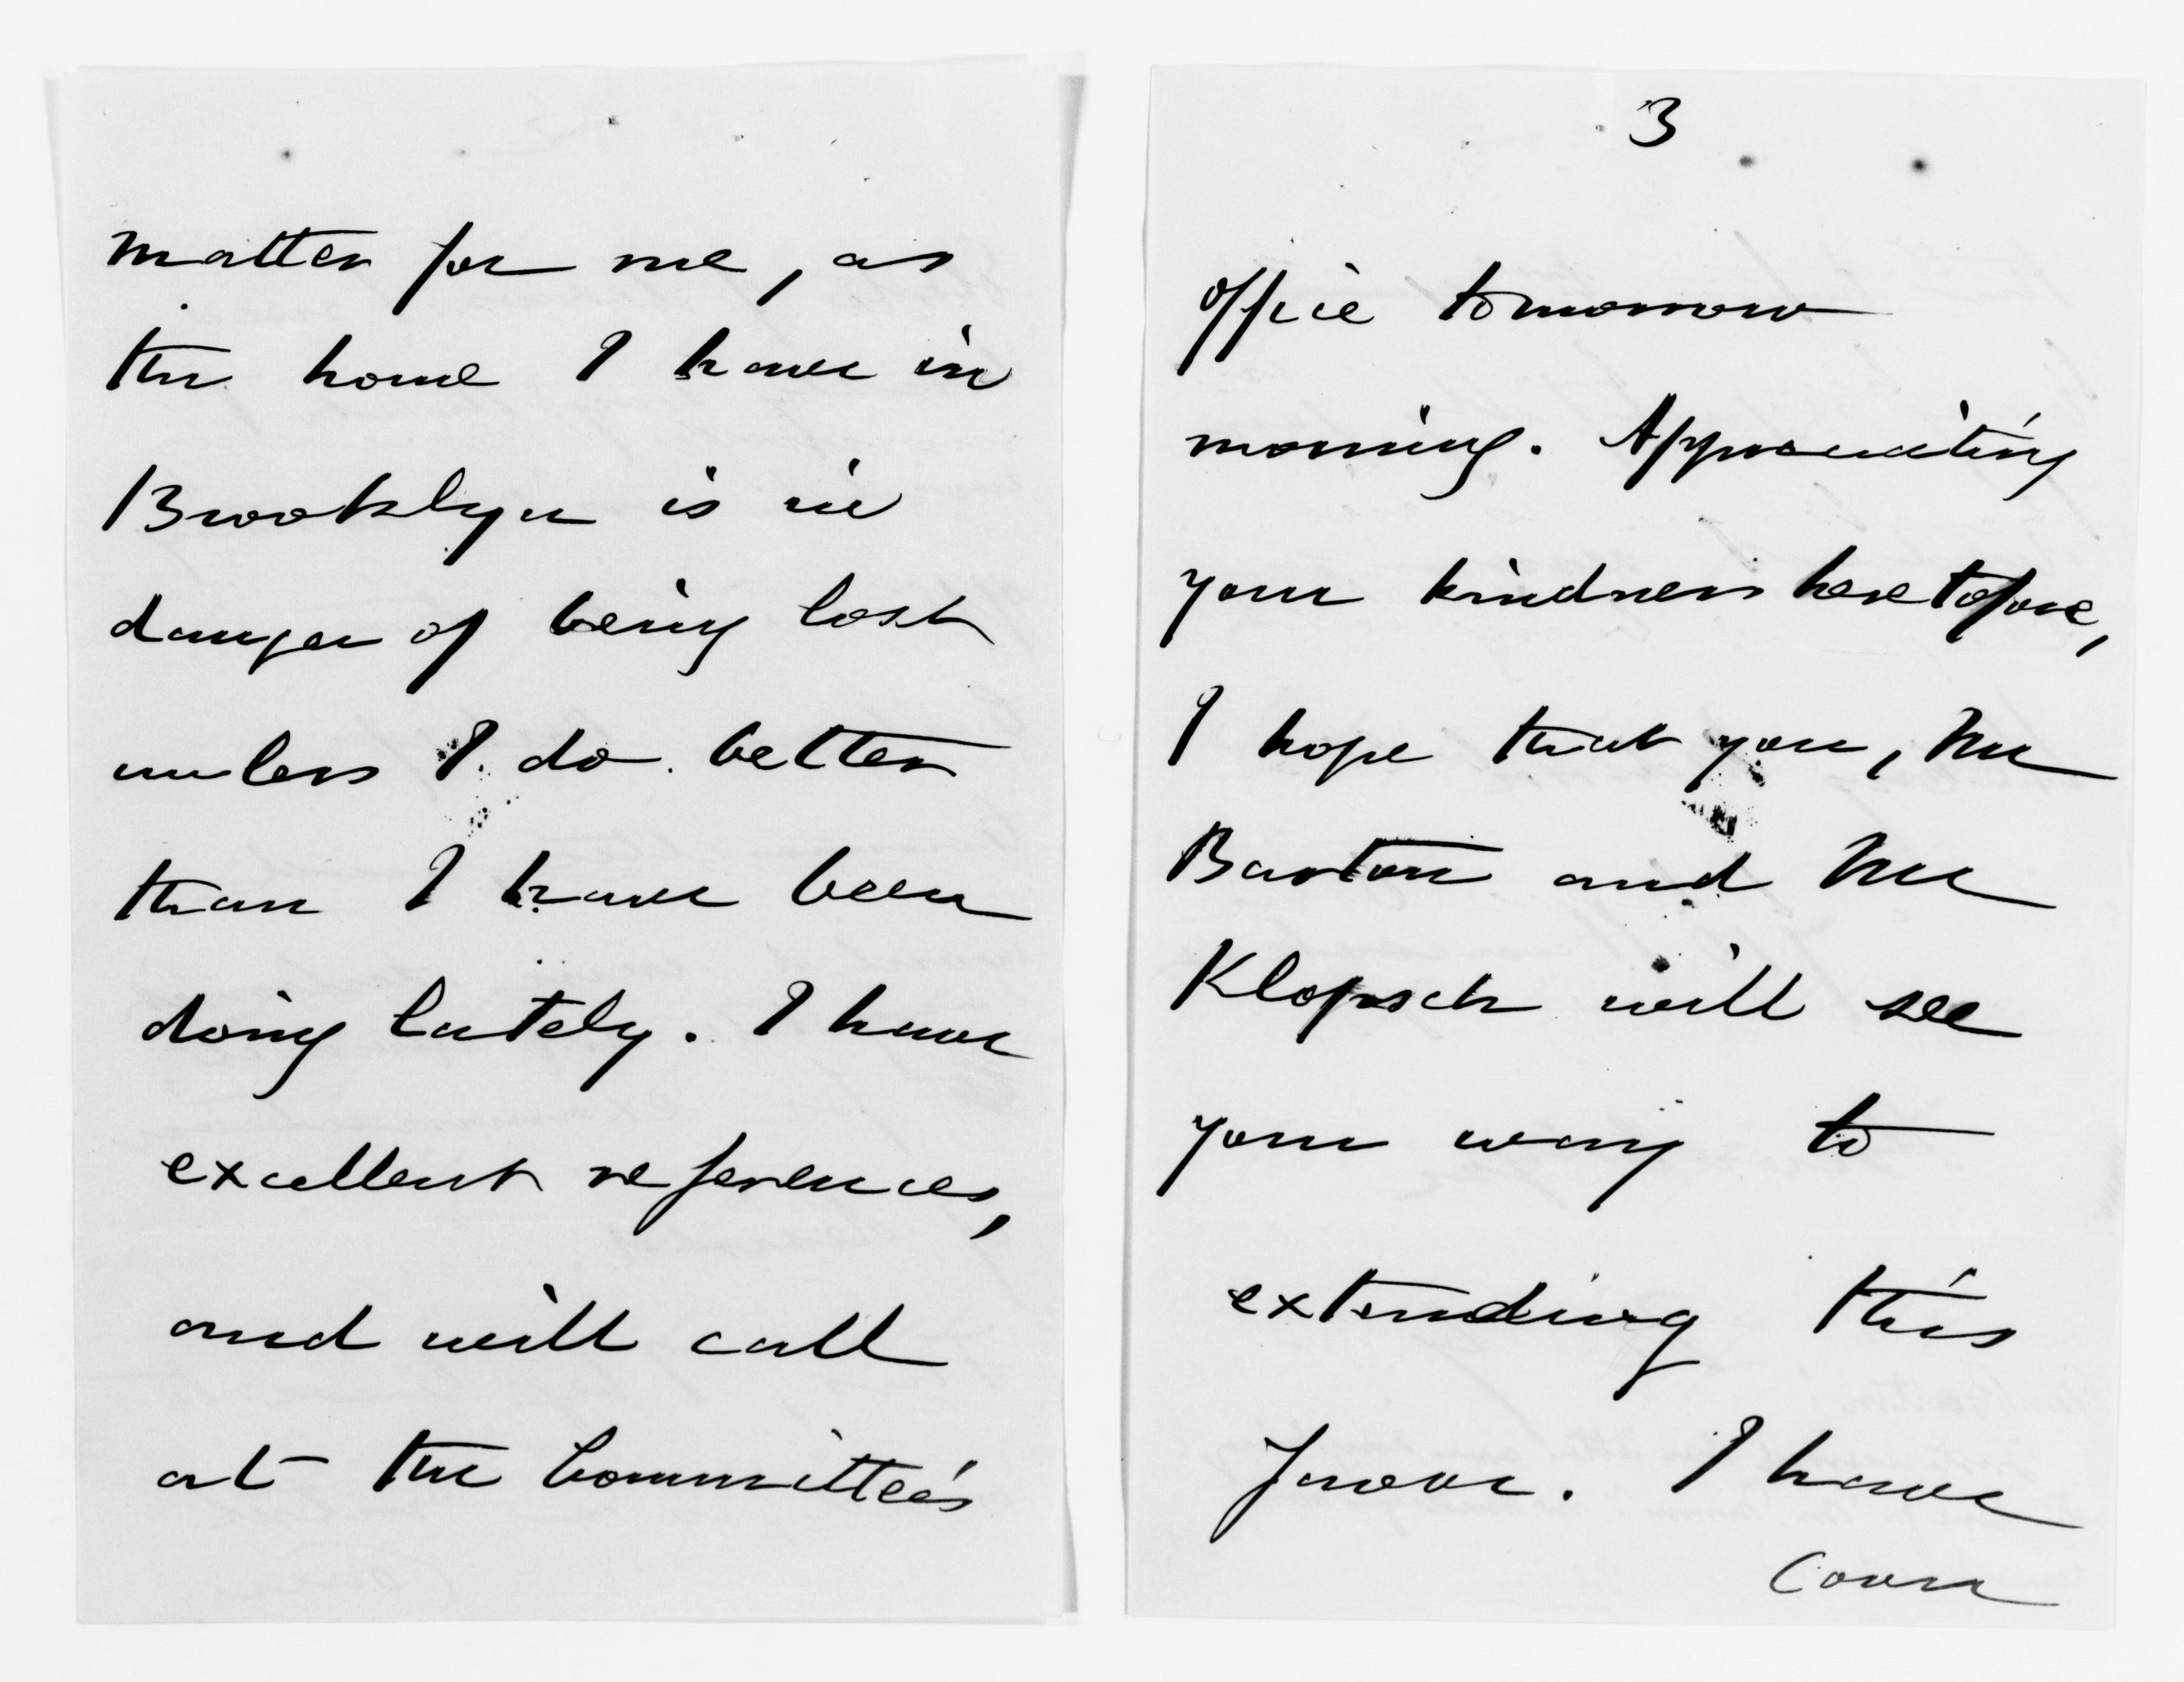 matter for me, as
the home I have in
Brooklyn is in
danger of being lost
unless I do better
than I have been
doing lately. I have
excellent references,
and will call
at the Committee's
3
office tomorrow
morning. Appreciating
your kindness heretofore,
I hope that you, Mr
Barton and Mr
Klopsch will see
your way to
extending this
favor. I have
(over